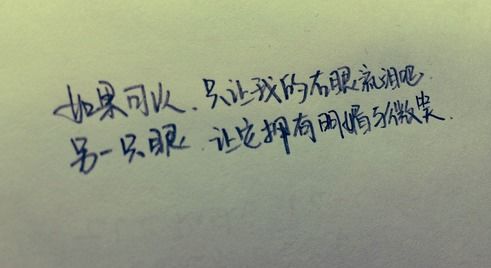 如果可以、只让我的右眼流泪吧.
另一只眼、让它拥有明媚与微笑.